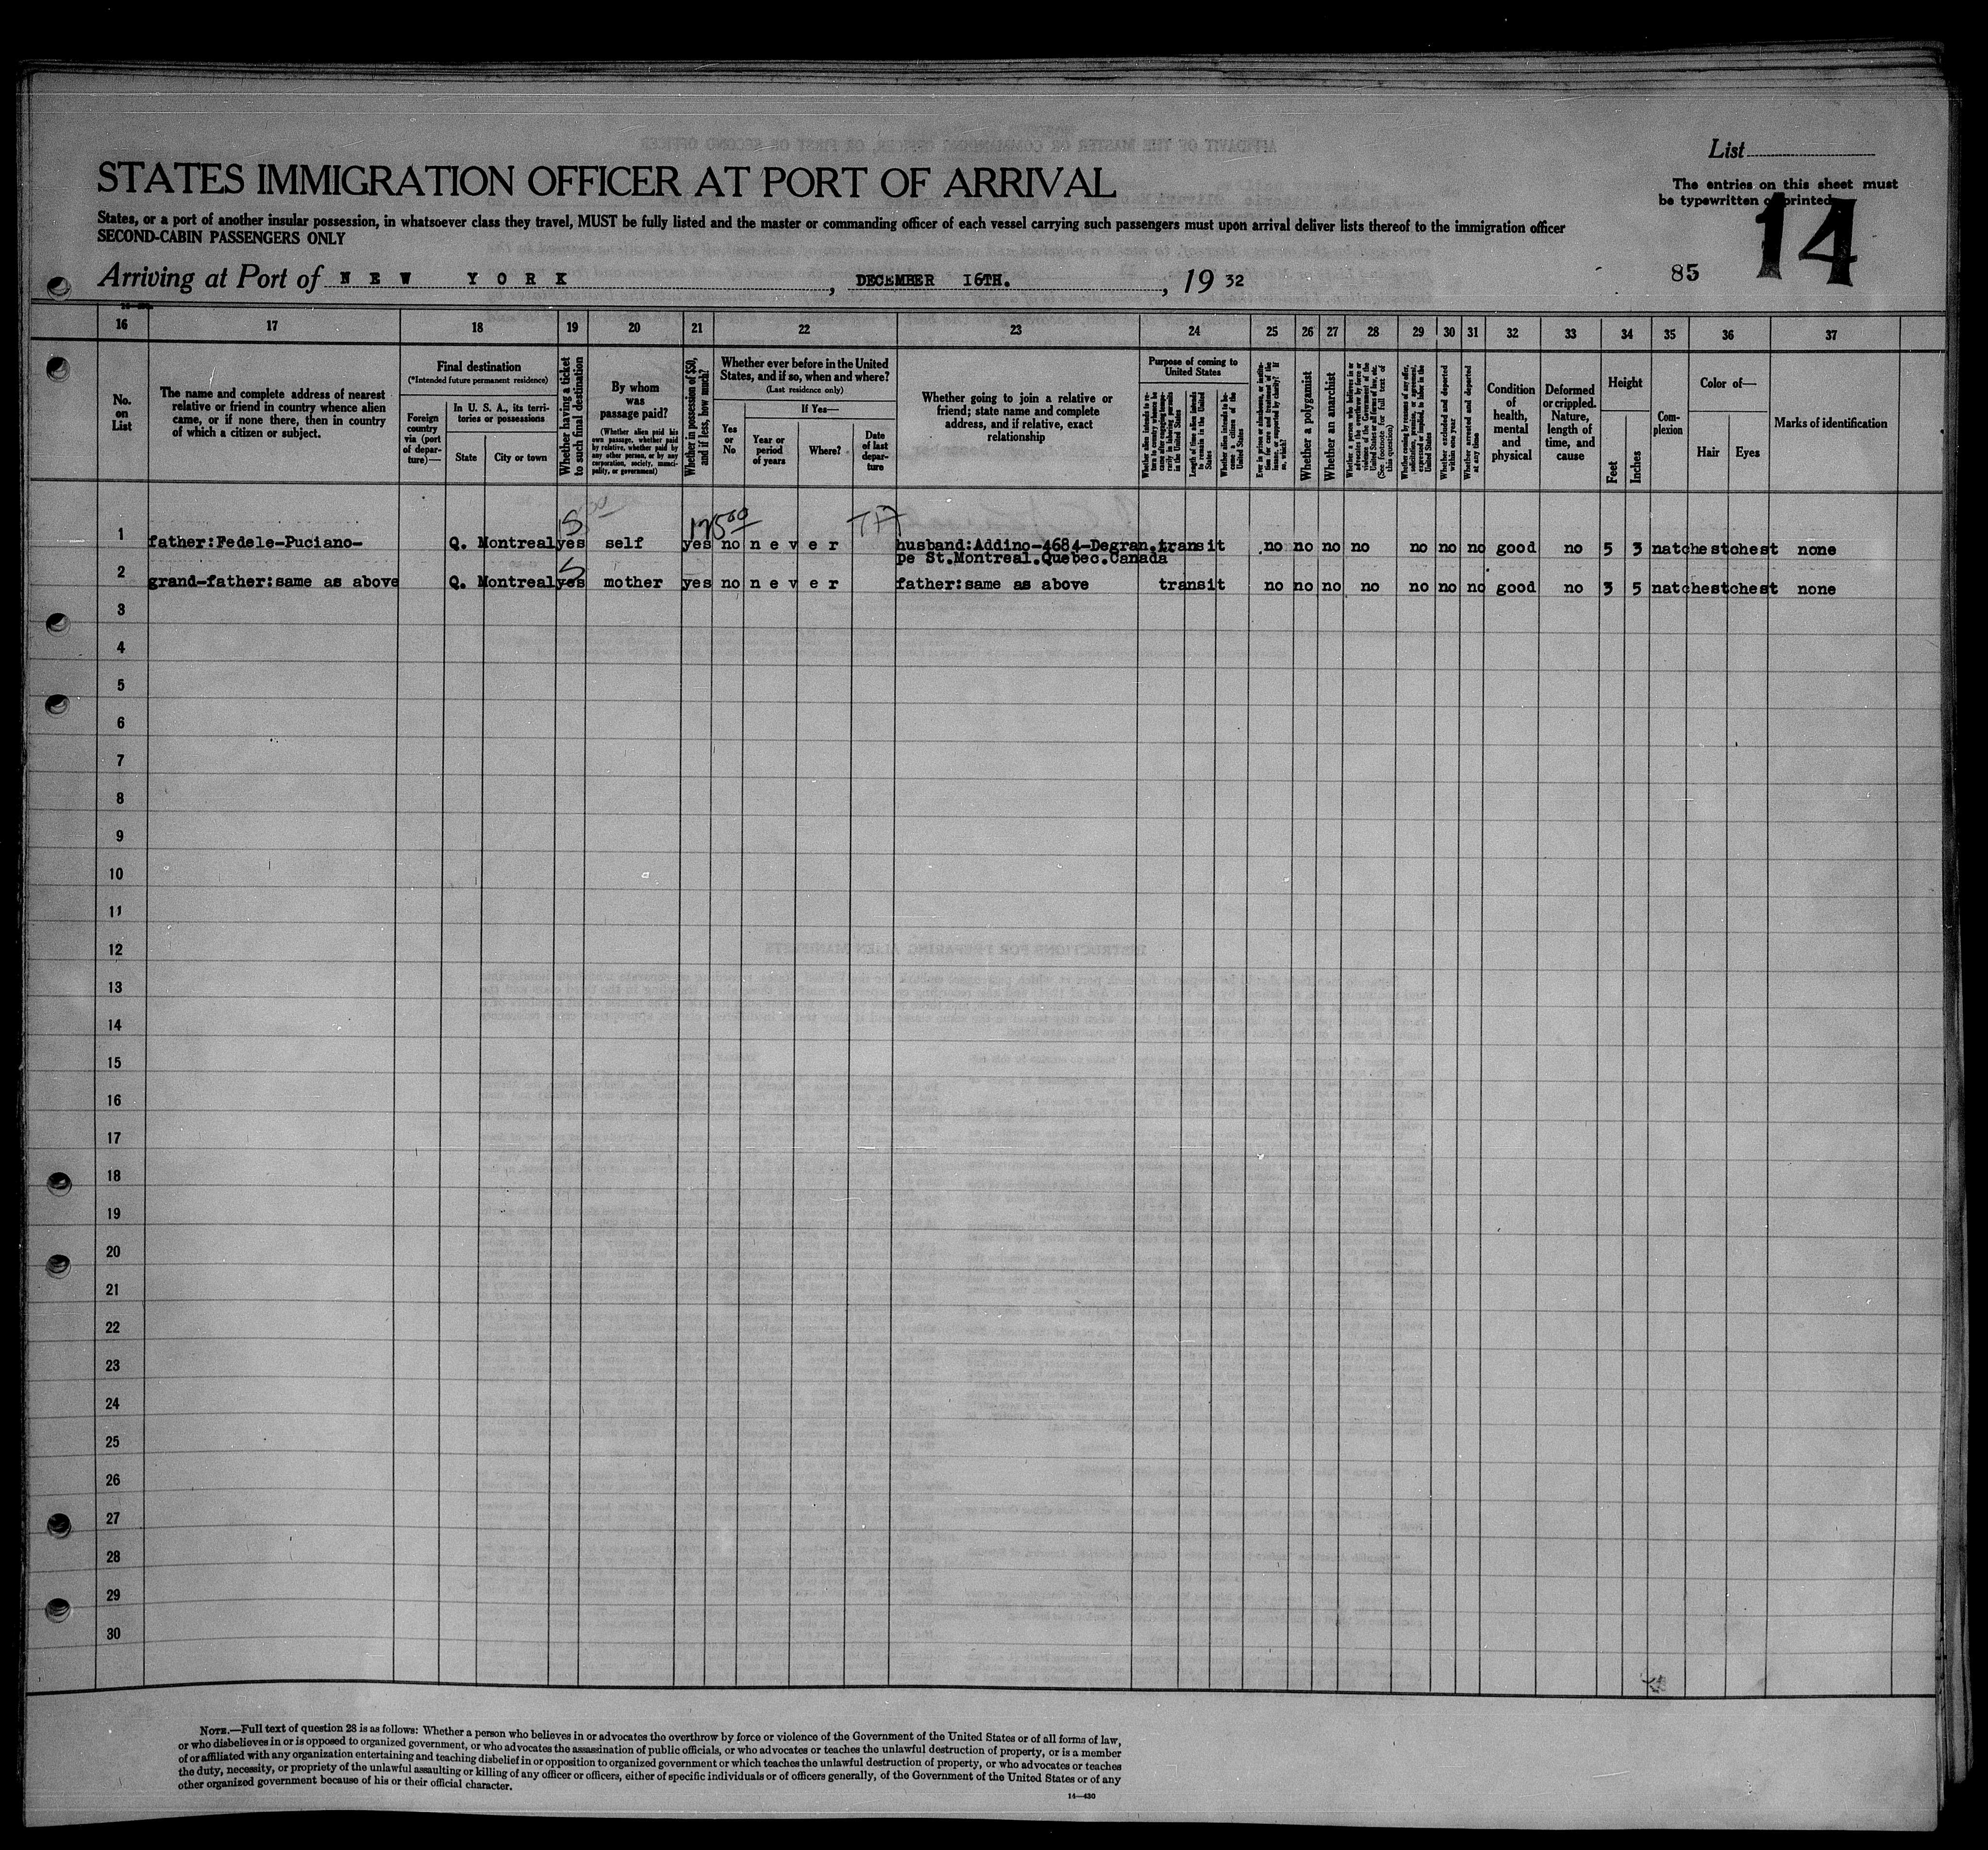 List
STATES IMMIGRATION OFFICER AT PORT OF ARRIVAL
The entries on this sheet must
be typewritten or printed.
States, or a port of another insular possession, in whatsoever class they travel, MUST be fully listed and the master or commanding officer of each vessel carrying such passengers must upon arrival deliver lists thereof to the immigration officer
SECOND-CABIN PASSENGERS ONLY
14
Arriving at Port of NEW YORK, DECEMBER 16TH., 19 32
85
16 17 18 19 20 21 22 23 24 25 26 27 28 29 30 31 32 33 34 35 36 37
No. on List
The name and complete address of nearest relative or friend in country whence alien came, or if none there, then in country of which a citizen or subject.
Final destination
(*Intended future permanent residence)
Foreign country via (port of departure)—
In U. S. A., its territories or possessions
State
City or town
Whether having a ticket to such final destination
By whom was passage paid?
(Whether alien paid his own passage, whether paid by relative, whether paid by any other person, or by any corporation, society, municipality, or government)
Whether in possession of $50, and if less, how much?
Whether ever before in the United States, and if so, when and where?
(Last residence only)
Yes or No
If Yes—
Year or period of years
Where?
Date of last departure
Whether going to join a relative or friend; state name and complete address, and if relative, exact relationship
Purpose of coming to United States
Whether alien intends to return to country whence he came after engaging temporarily in laboring pursuits in the United States
Length of time alien intends to remain in the United States
Whether alien intends to become a citizen of the United States
Ever in prison or almshouse, or institution for care and treatment of the insane, or supported by charity? If so, which?
Whether a polygamist
Whether an anarchist
Whether a person who believes in or advocates the overthrow by force or violence of the Government of the United States or all forms of law, etc. (See footnote for full text of this question)
Whether coming by reasons of any offer, solicitation, promise, or agreement, expressed or implied, to labor in the United States
Whether excluded and deported within one year
Whether arrested and deported at any time
Condition of health, mental and physical
Deformed or crippled. Nature, length of time, and cause
Height
Feet
Inches
Complexion
Color of—
Hair
Eyes
Marks of identification
17500
1 father:Fedele-Puciano- Q. Montreal yes self yes no never husband:Addino-4684-Degran. transit no no no no no no no good no 5 3 nat chest chest none
pe St.Montreal.Quebec.Canada
2 grand-father:same as above Q. Montreal yes mother yes no never father:same as above transit no no no no no no no good no 3 5 nat chest chest none
3
4
5
6
7
8
9
10
11
12
13
14
15
16
17
18
19
20
21
22
23
24
25
26
27
28
29
30
NOTE.—Full text of question 28 is as follows: Whether a person who believes in or advocates the overthrow by force or violence of the Government of the United States or of all forms of law,
or who disbelieves in or is opposed to organized government, or who advocates the assassination of public officials, or who advocates or teaches the unlawful destruction of property, or is a member
of or affiliated with any organization entertaining and teaching disbelief in or opposition to organized government or which teaches the unlawful destruction of property, or who advocates or teaches
the duty, necessity, or propriety of the unlawful assaulting or killing of any officer or officers, either of specific individuals or of officers generally, of the Government of the United States or of any
other organized government because of his or their official character.
14—430